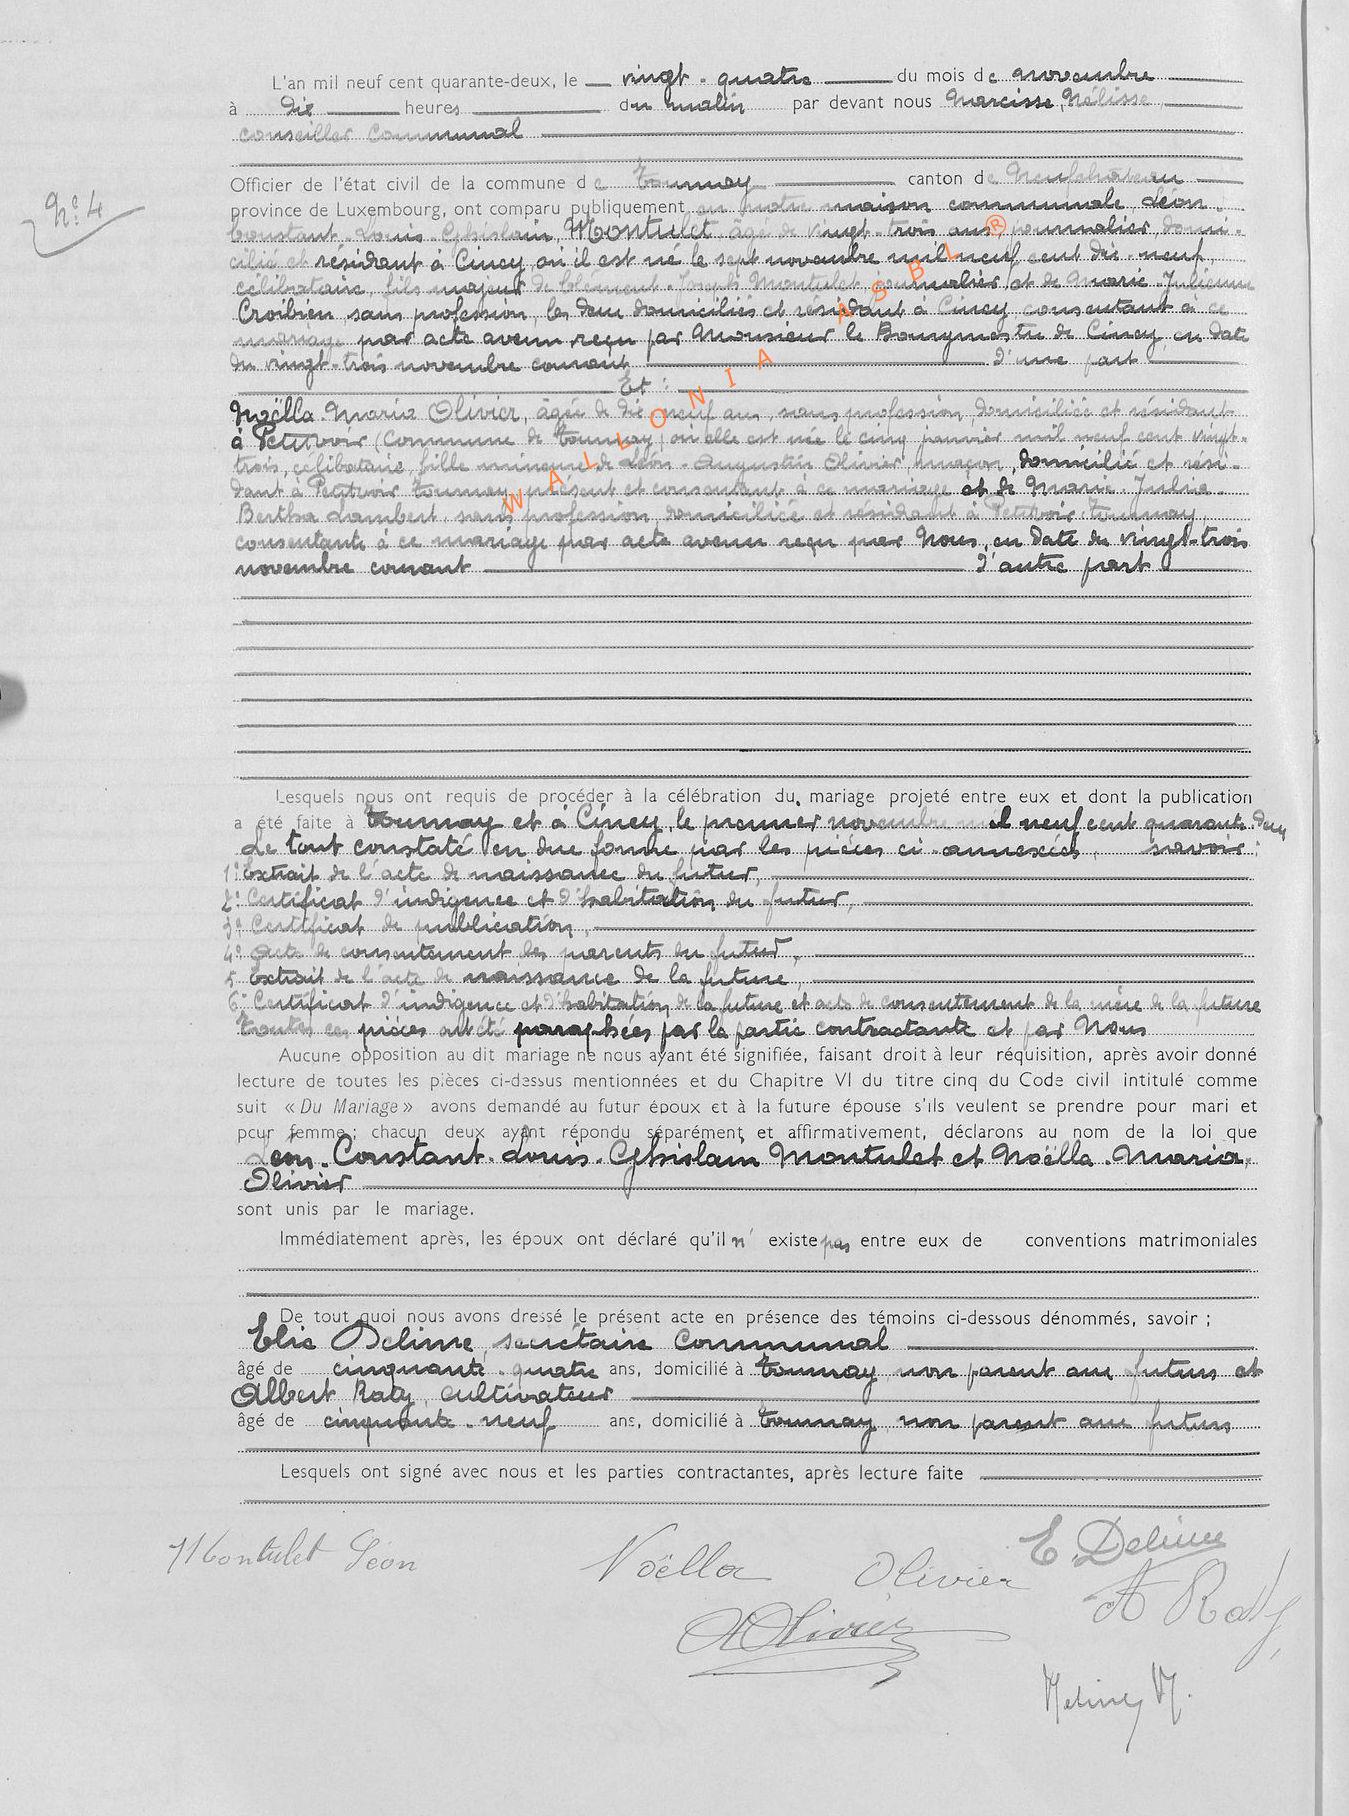 L'an mil neuf cent quarante-deux, le vingt-quatre du mois de novembre
à dix heures du matin par devant nous Narcisse,
conseiller communal
N° 4
Officier de l'état civil de la commune de Tournay canton de Neufchâteau
province de Luxembourg, ont comparu publiquement en notre maison communale Léon
Constant-Louis-Ghislain Montulet âgé de vingt-trois ans, journalier, domi-
cilié et résidant à Ciney, où il est né le sept novembre mil neuf cent dix-neuf,
célibataire, fils majeur de Clément-Joseph Montulet journalier et de Marie-Julienne
sans profession, les deux domiciliés et résidant à Ciney, consentant à ce
mariage par acte avenu reçu par Monsieur le Bourgmestre de Ciney, en date
du vingt-trois novembre courant d'une part
Et :
Noëlla-Maria Olivier, âgée de dix-neuf ans, sans profession, domiciliée et résidant
à Petitvoir (Commune de Tournay) où elle est née le cinq janvier mil neuf cent vingt-
trois, célibataire, fille mineure de Léon-Augustin Olivier, maçon, domicilié et rési-
dant à Petitvoir Tournay, présent et consentant à ce mariage et de Marie-Julie-
Bertha Lambert, sans profession, domiciliée et résidant à Petitvoir-Tournay
consentante à ce mariage par acte avenu reçu par Nous, en date du vingt-trois
novembre courant d'autre part
Lesquels nous ont requis de procéder à la célébration du mariage projeté entre eux et dont la publication
a été faite à Tournay et à Ciney, le premier novembre mil neuf cent quarante-deux
Le tout constaté en due forme par les pièces ci-annexées, savoir :
1° Extrait de l'acte de naissance du futur,
2° Certificat d'indigence et d'habitation du futur,
3° Certificat de publication,
4° Acte de consentement des parents du futur,
5° Extrait de l'acte de naissance de la future,
6° Certificat d'indigence et d'habitation de la future et acte de consentement de la mère de la future
Toutes ces pièces ont été paraphées par la partie contractante et par Nous
Aucune opposition au dit mariage ne nous ayant été signifiée, faisant droit à leur réquisition, après avoir donné
lecture de toutes les pièces ci-dessus mentionnées et du Chapitre VI du titre cinq du Code civil intitulé comme
suit « Du Mariage » avons demandé au futur époux et à la future épouse s'ils veulent se prendre pour mari et
pour femme ; chacun deux ayant répondu séparément et affirmativement, déclarons au nom de la loi que
Léon-Constant-Louis-Ghislain Montulet et Noëlla-Maria-
Olivier
sont unis par le mariage.
Immédiatement après, les époux ont déclaré qu'il n'existe pas entre eux de conventions matrimoniales
De tout quoi nous avons dressé le présent acte en présence des témoins ci-dessous dénommés, savoir ;
Elie Delime, secrétaire communal
âgé de cinquante-quatre ans, domicilié à Tournay non parent aux futurs et
Albert Raty, cultivateur
âgé de cinquante-neuf ans, domicilié à Tournay, non parent aux futurs
Lesquels ont signé avec nous et les parties contractantes, après lecture faite
Montulet Léon Noëlla Olivier E. Delime
A Raty
Olivier
WALLONIA ASBL ®